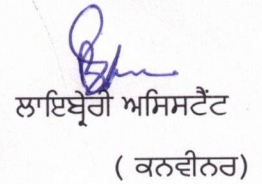 ਲਾਇਬ੍ਰੇਰੀ ਅਸਿਸਟੈਂਟ
( ਕਨਵੀਨਰ)